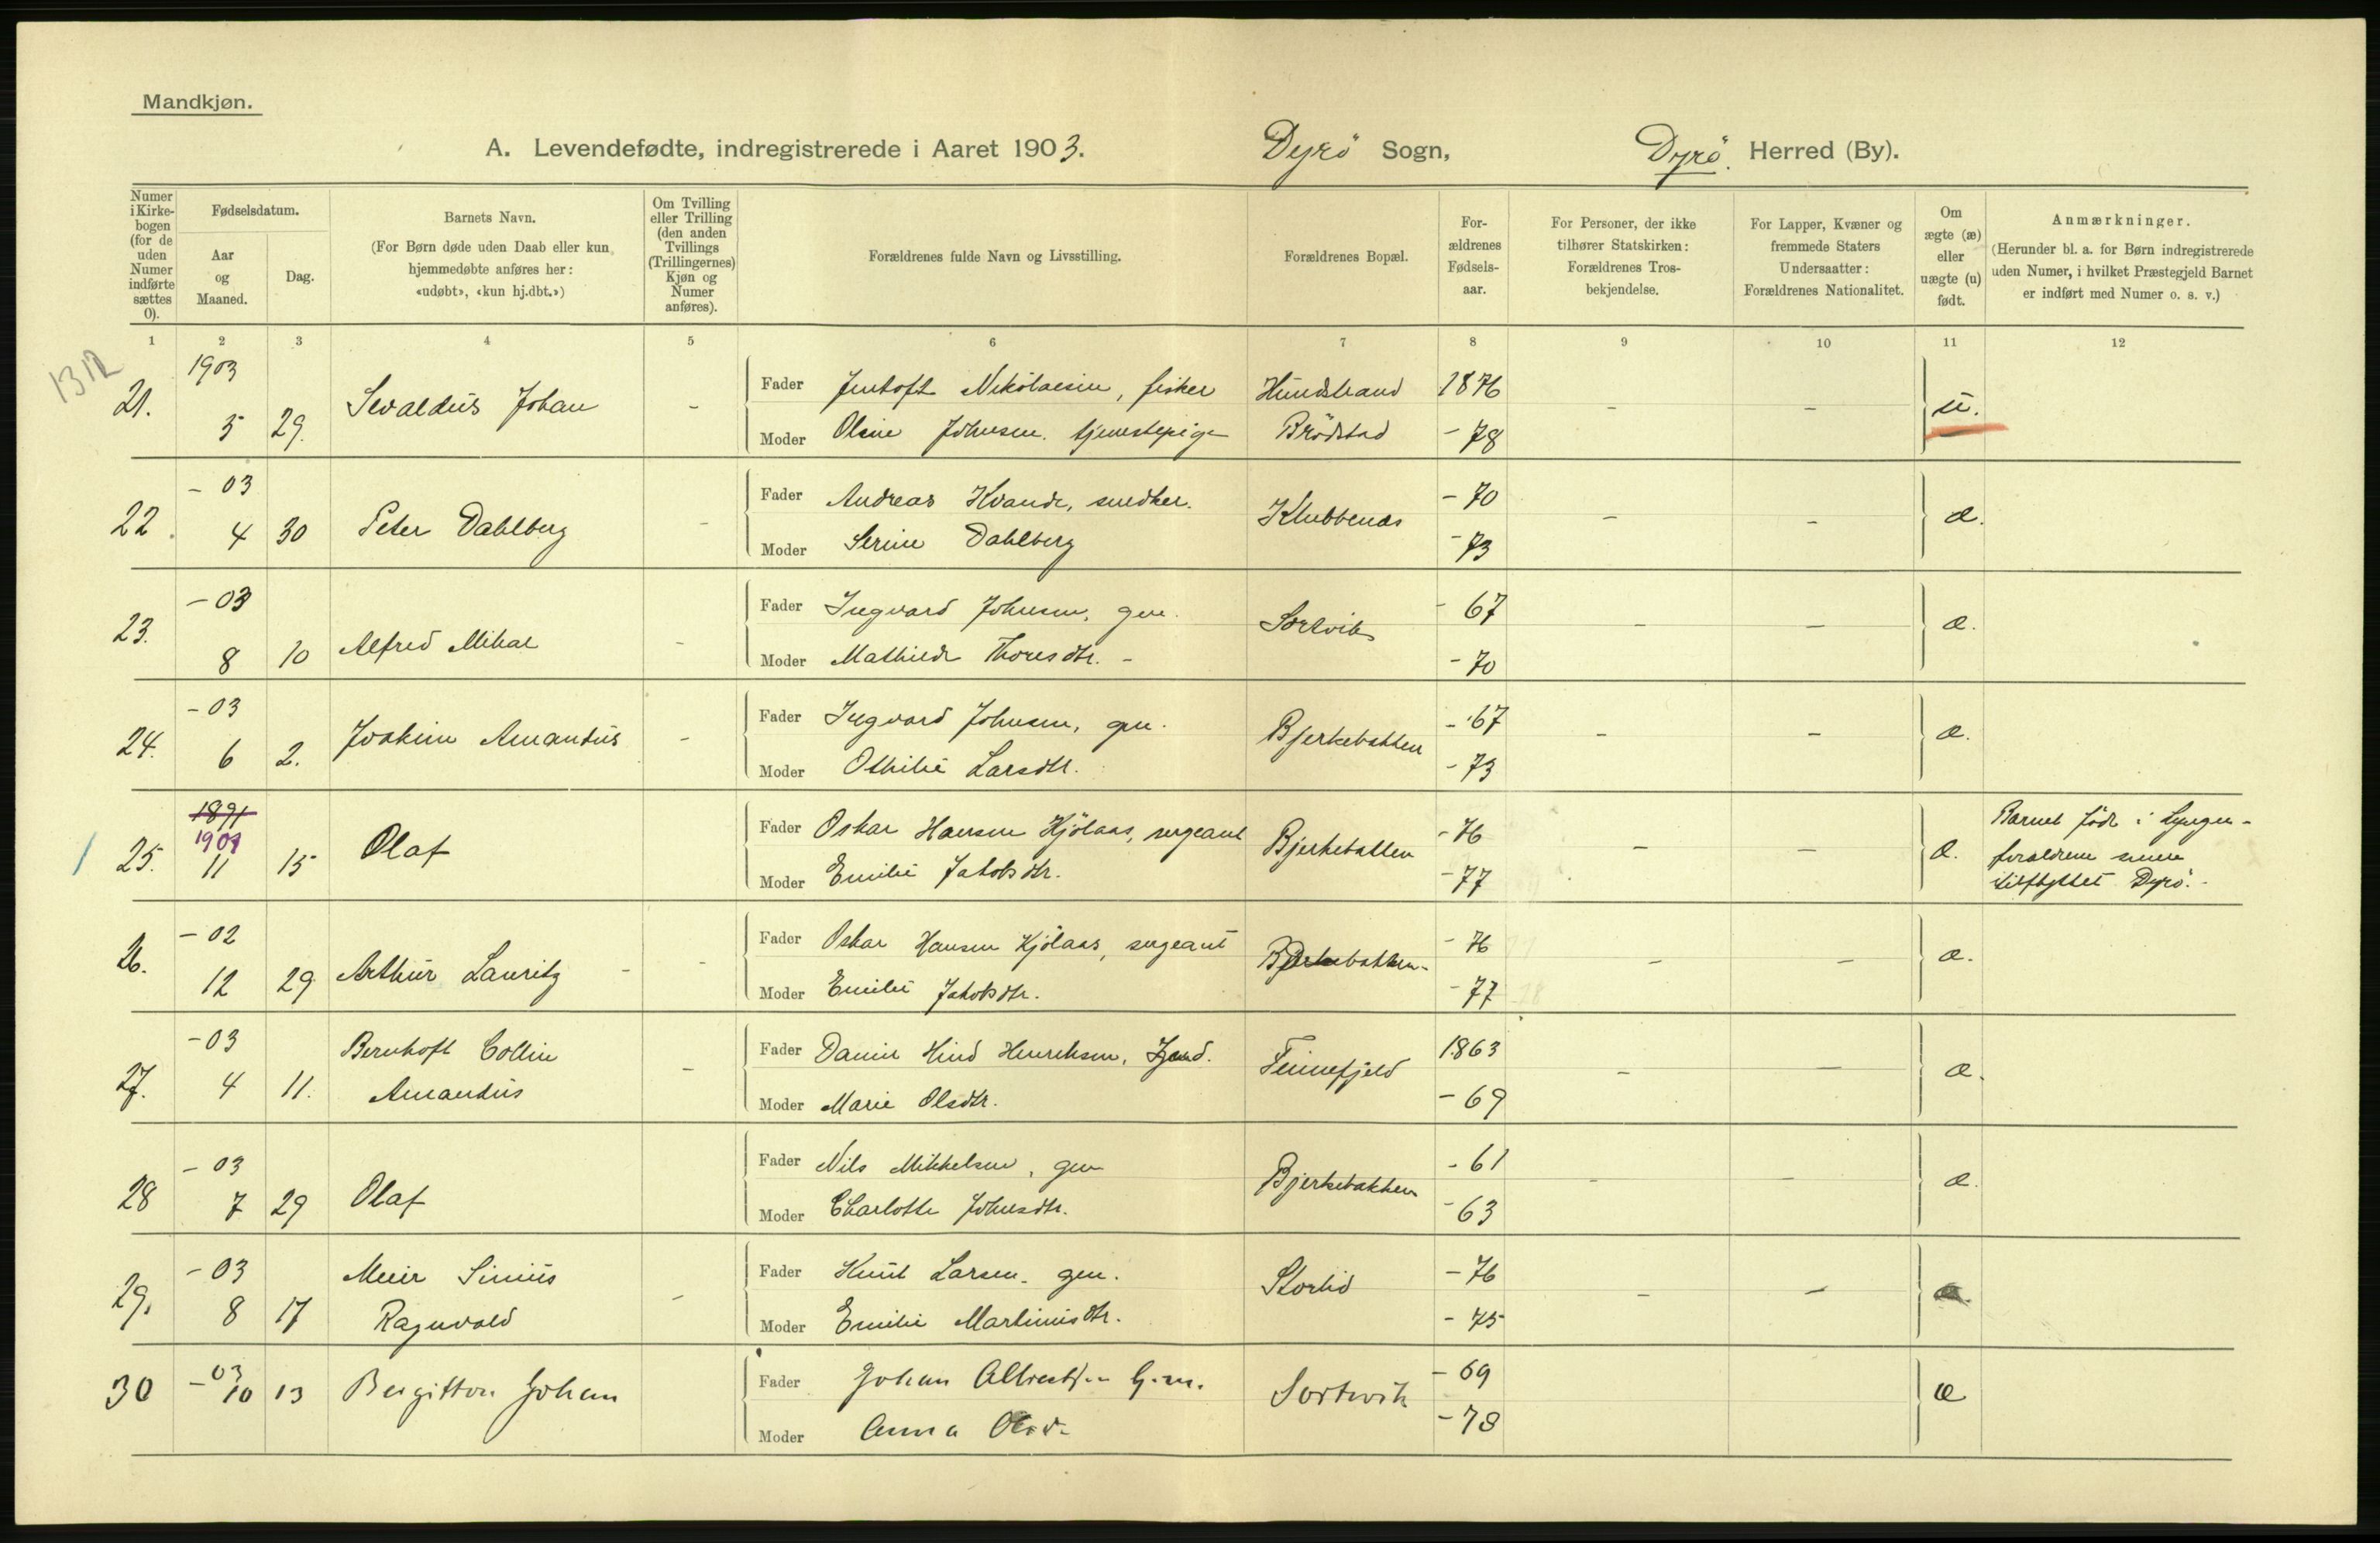 Mandkjøn.
A. Levendefødte, indregistrerede i Aaret 1903. Dyrö Sogn, Dyrö. Herred (By).
Numer i Kirkebogen (for de uden Numer indførte sættes 0).
Fødselsdatum.
Aar og Maaned.
Dag.
Barnets Navn.
(For Børn døde uden Daab eller kun hjemmedøbte anføres her: «udøbt», «kun hj.dbt.»)
Om Tvilling eller Trilling (den anden Tvillings (Trillingernes) Kjøn og Numer anføres).
Forældrenes fulde Navn og Livsstilling.
Forældrenes Bopæl.
Forældrenes Fødselsaar.
For Personer, der ikke tilhører Statskirken: Forældrenes Trosbekjendelse.
For Lapper, Kvæner og fremmede Staters Undersaatter: Forældrenes Nationalitet.
Om ægte (æ) eller uægte (u) født.
Anmærkninger.
(Herunder bl. a. for Børn indregistrerede uden Numer, i hvilket Præstegjeld Barnet er indført med Numer o. s. v.)
1 2 3 4 5 6 7 8 9 10 11 12
1312
21. 1903 5 29. Sevaldus Johan -
Fader Jentoft Nikolaisen, fisker Hundstrand 1876 - - u.
Moder Oline Johnsen. tjenestepige Brödstad - 78
22. - 03 4 30 Peter Dahlberg -
Fader Andreas Kvande, snedker. Klubbenæs - 70 - - æ.
Moder Serine Dahlberg - 73
23. - 03 8 10 Alfred Mikal -
Fader Ingvard Johnsen, gm. Sortvik - 67 - - æ.
Moder Mathilde Thoresdtr. - - 70
24. - 03 6 2. Joakim Amandus -
Fader Ingvard Johnsen, gm. Bjerkebakken - 67 - - æ.
Moder Othilie Larsdtr. - 73
25. 1891 1901 11 15 Olaf
Fader Oskar Hansen Kjölaas, sergeant Bjerkebakken - 76 - - æ. Barnet födt i Lyngen -
Moder Emilie Jakobsdtr. - 77 forældrene senere
tilflyttet Dyrö. -
26. - 02 12 29 Arthur Lauritz - -
Fader Oskar Hansen Kjölaas, sergeant Bjerkebakken - - 76 - - æ.
Moder Emilie Jakobsdtr. - 77
27. - 03 4 11. Bernhoft Collin Amandus -
Fader Daniel Hind Henriksen, Finnefjeld 1863 - - æ.
Moder Marie Olsdtr. - 69
28 - 03 7 29 Olaf
Fader Nils Mikkelsen, gm Bjerkebakken - 61 - - æ.
Moder Charlotte Johnsdtr. - 63
29. - 03 8 17 Meier Sinius Ragnvald -
Fader Knut Larsen. gm. Storlid - 76 - - æ.
Moder Emilie Martinusdtr. - 75
30 - 03 10 13 Bergitton Johan
Fader Johan Albrechtsen G.m. Sortvik - 69 æ
Moder Anna - 78